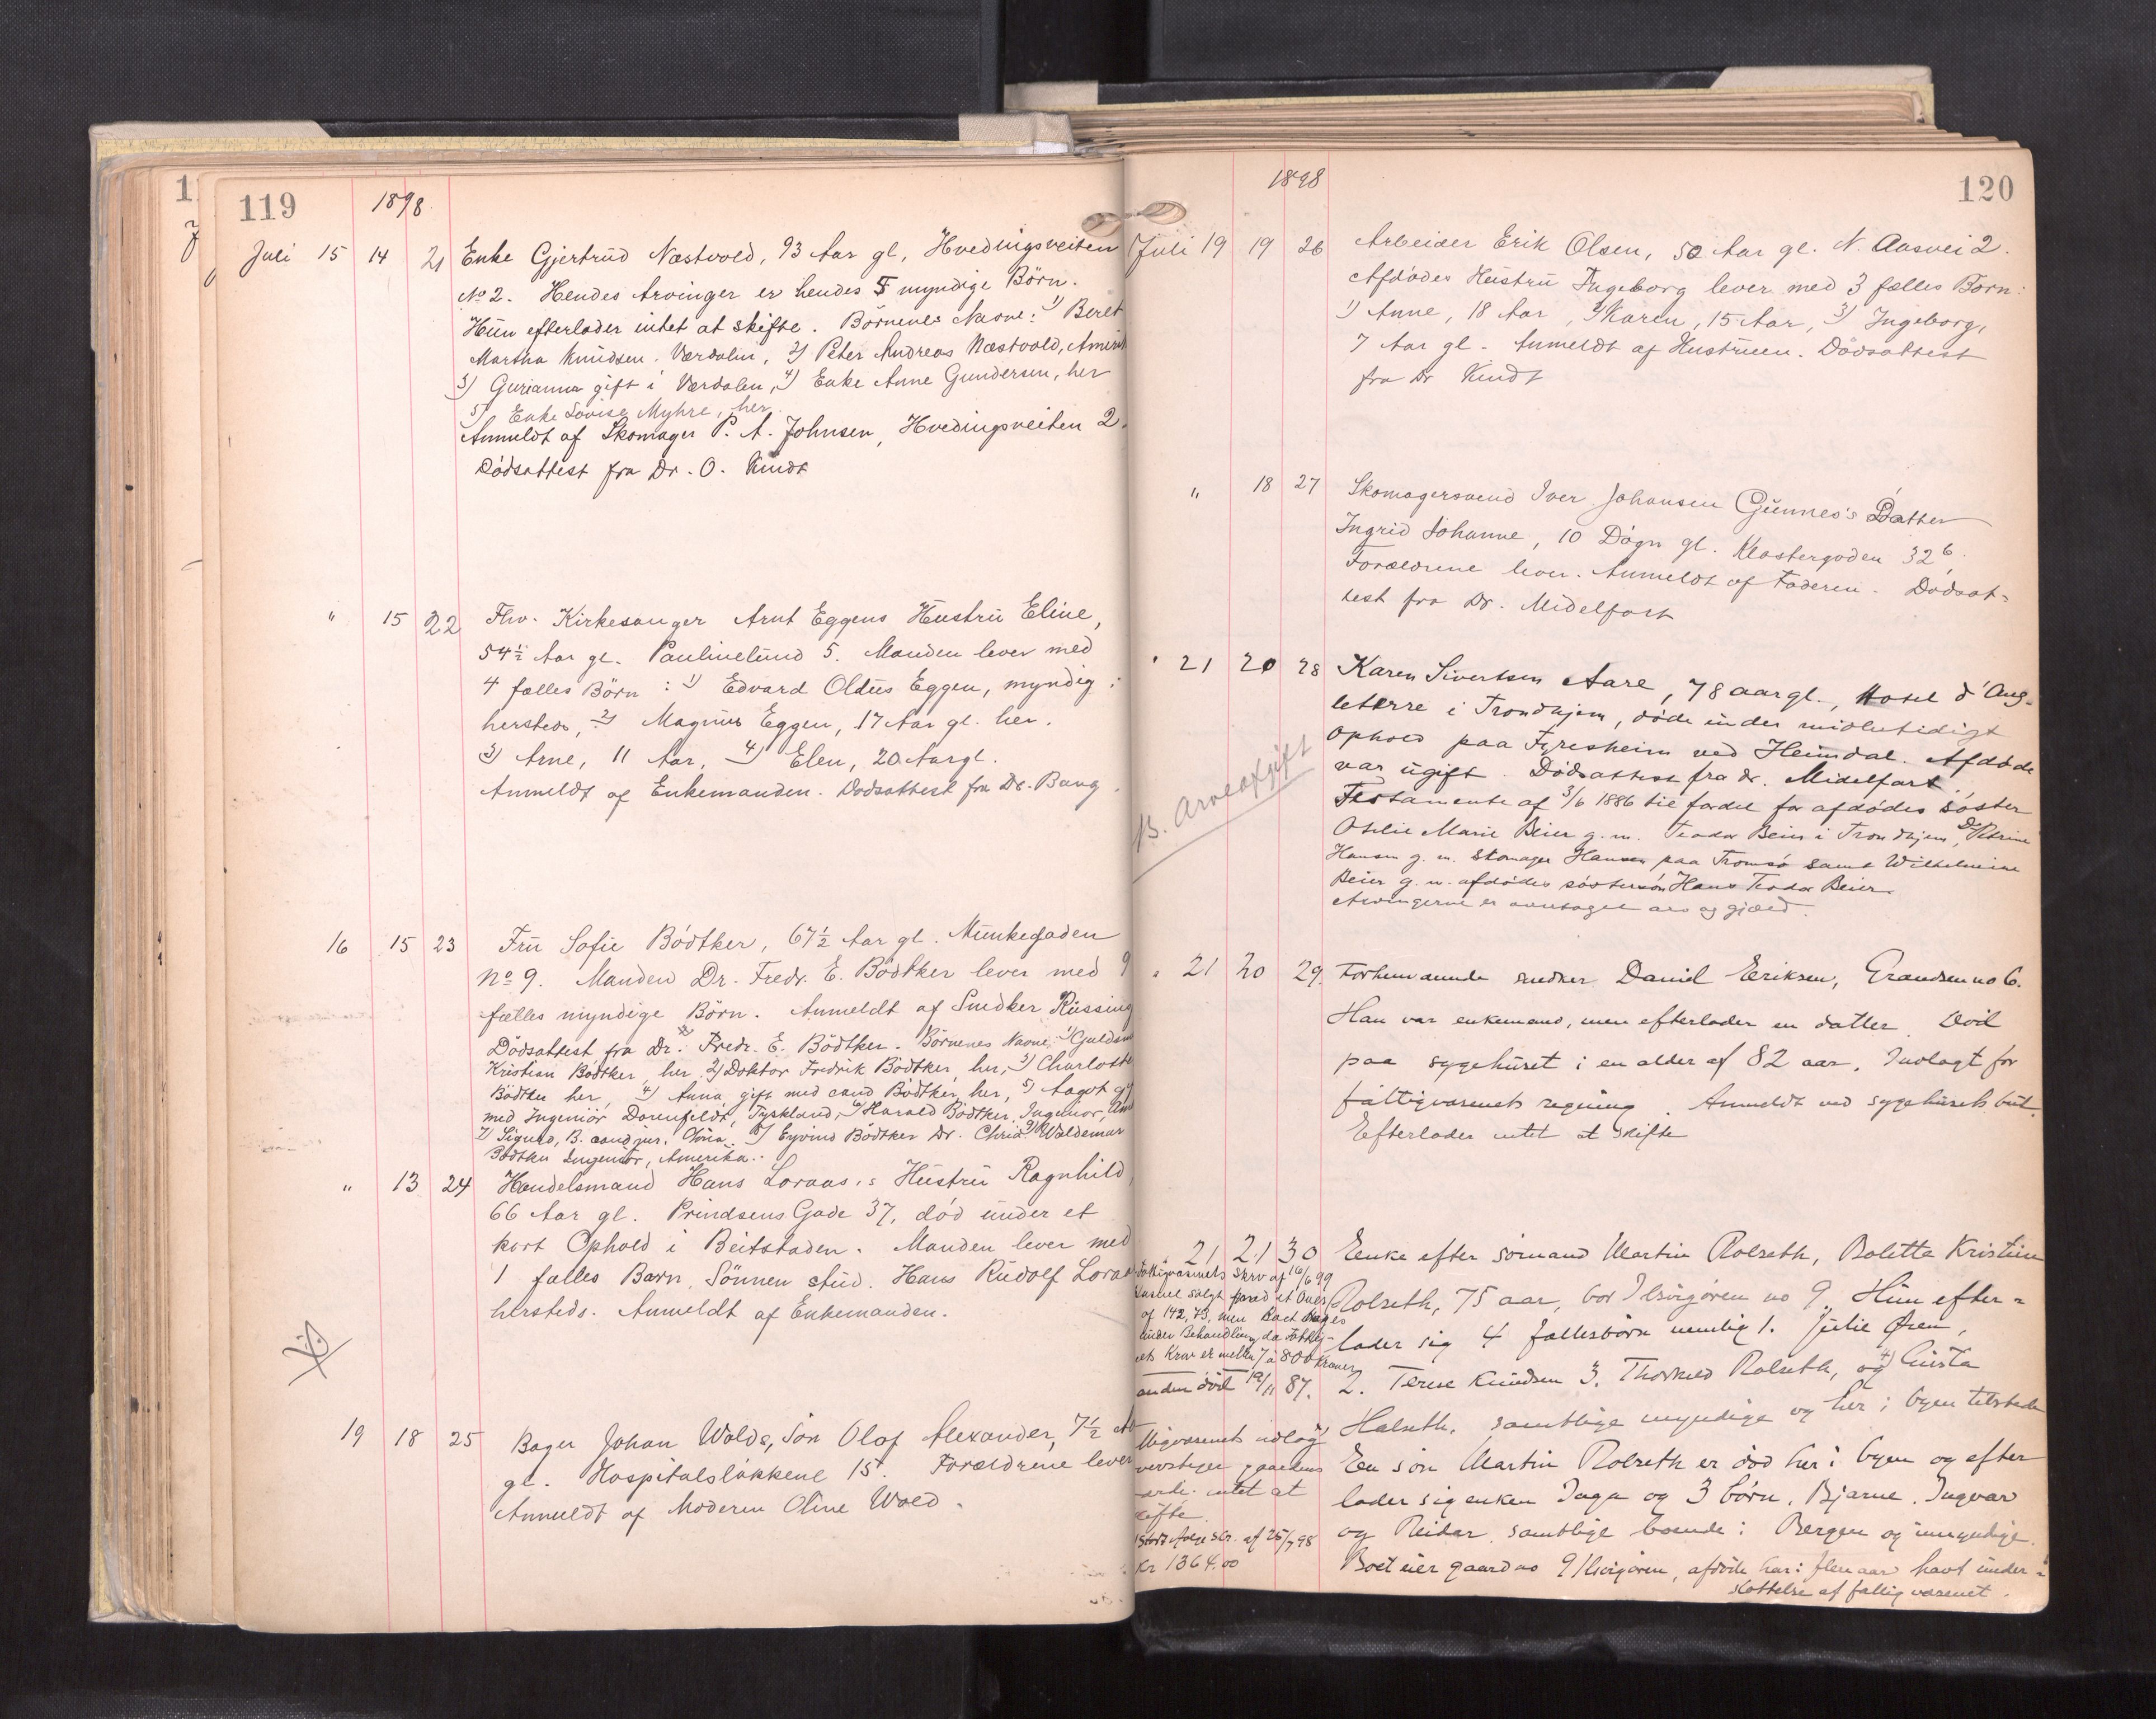 119
1898
Juli 15 14 21 Enke Gjertrud Næstvold, 93 Aar gl, Hvedingsveiten
No 2. Hendes Arvinger er hendes 5 myndige Börn.
Hun efterlader intet at skifte. Börnenes Navne: 1) Beret
Martha Knudsen, Værdalen, 2) Peter Andreas Næstvold, Amerik
3) Gurianna gift i Værdalen, 4) Enke Anne Gundersen, her
5) Enke Lovise Myhre, her.
Anmeldt af Skomager P. A. Johnsen, Hvedingsveiten 2.
Dödsattest fra Dr. O. Kindt
" 15 22 Fhv. Kirkesanger Arnt Eggens Hustru Eline,
54½ Aar gl. Paulinelund 5. Manden lever med
4 fælles Börn: 1) Edvard Oldus Eggen, myndig:
hersteds, 2) Magnus Eggen, 17 Aar gl. her.
3) Arne, 11 Aar, 4) Elen, 20 Aar gl.
Anmeldt af Enkemanden. Dödsattest fra Dr. Bang.
16 15 23 Fru Sofie Bödtker, 67½ Aar gl. Munkegaden
No 9. Manden Dr. Fredr. E. Bödtker lever med 9
fælles myndige Börn. Anmeldt af Snedker Russing
Dödsattest fra Dr. Fredr. E. Bödtker. Börnenes Navne: 1) Guldsm
Kristian Bödtker, her, 2) Doktor Fredrik Bödtker, her, 3) Charlotte
Bödtker her, 4) Anna gift med cand Bödtker, her, 5) Aagot g
med Ingeniör Dorenfeldt, Tyskland, 6) Harald Bödtker, Ingeniör, Am
7) Sigurd, B. cand jur. Chria. 8) Eyvind Bödtker Dr. Chria 9) Waldemar
Bödtker Ingeniör, Amerika.
" 13 24 Handelsmand Hans Loraas's Hustru Ragnhild,
66 Aar gl. Prindsens Gade 37, död under et
kort Ophold i Beitstaden. Manden lever med
1 fælles Barn, Sönnen stud. Hans Rudolf Loraa
hersteds. Anmeldt af Enkemanden.
19 18 25 Bager Johan Wolds, Sön Olaf Alexander, 7½
gl. Hospitalslökkene 15. Forældrene lever
Anmeldt af Moderen Oline Wold.
1898
120
Juli 19 19 26 Arbeider Erik Olsen, 50 Aar gl. N. Aasvei 2.
Afdödes Hustru Ingeborg lever med 3 fælles Börn:
1) Anne, 18 Aar, 2) Karen, 15 Aar, 3) Ingeborg,
7 Aar gl. Anmeldt af Hustruen. Dödsattest
fra Dr Kindt
" 18 27 Skomagersvend Iver Johansen Gunnes's Datter
Ingrid Johanne, 10 Dögn gl. Klostergaden 32 6.
Forældrene lever. Anmeldt af Faderen. Dödsat-
test fra Dr. Midelfart
" 21 20 28 Karen Sivertsen Aare, 78 aar gl., Hotel d'Ang-
leterre i Trondhjem, döde under midlertidigt
ophold paa Fyresheim ved Heimdal. Afdöde
var ugift. Dödsattest fra dr. Midelfart.
Testamente af 3/6 1886 til fordel for afdödes söster
Otelie Marie Beier g. m. Teodor Beier i Trondhjem, Petrine
Hansen g. m. Skomager Hansen paa Tromsö samt Wilhelmine
Beier g. m. afdödes söstersön Hans Teodor Beier.
Arvingerne er overtaget arv og gjæld.
B. Arveafgift
" 21 20 29. Forhenværende snedker Daniel Eriksen, Grandsen no 6.
Han var enkemand, men efterlader en datter. Död
paa sygehuset i en alder af 82 aar, Indlagt for
fattigvæsenets regning. Anmeldt ved sygehusets bud.
Efterlader intet at skifte
21 21 30 Enke efter sömand Martin Rolseth, Boletta Kristine
Rolseth, 75 aar, bor Ilsvigören no 9. Hun efter-
lader sig 4 fællesbörn nemlig 1. Julie Ören,
2. Terese Knudsen 3. Thorvald Rolseth, og 4) Gusta
Halseth, samtlige myndige og her i byen tilstede
En sön Martin Rolseth er död her i byen og efter
lader sig enken Inga og 3 börn, Bjarne, Ingvar
og Reidar samtlige boende i Bergen og umyndige.
Boet eier gaard no 9 Ilsvigören, afdöde har i flere aar havt under-
støttelse af fattigvæsenet.
Fattigvæsenets skrv af 16/6 99
af 142,43, men Boet tages
under Behandling da Fattig-
ets Krav er mellem 7 à 800 Kroner
anden död 19/11 87.
ttigvæsenets udlæg
verstiger gaardens
værdi. intet at
skifte.
af 25/7 98
Kr 1364.00